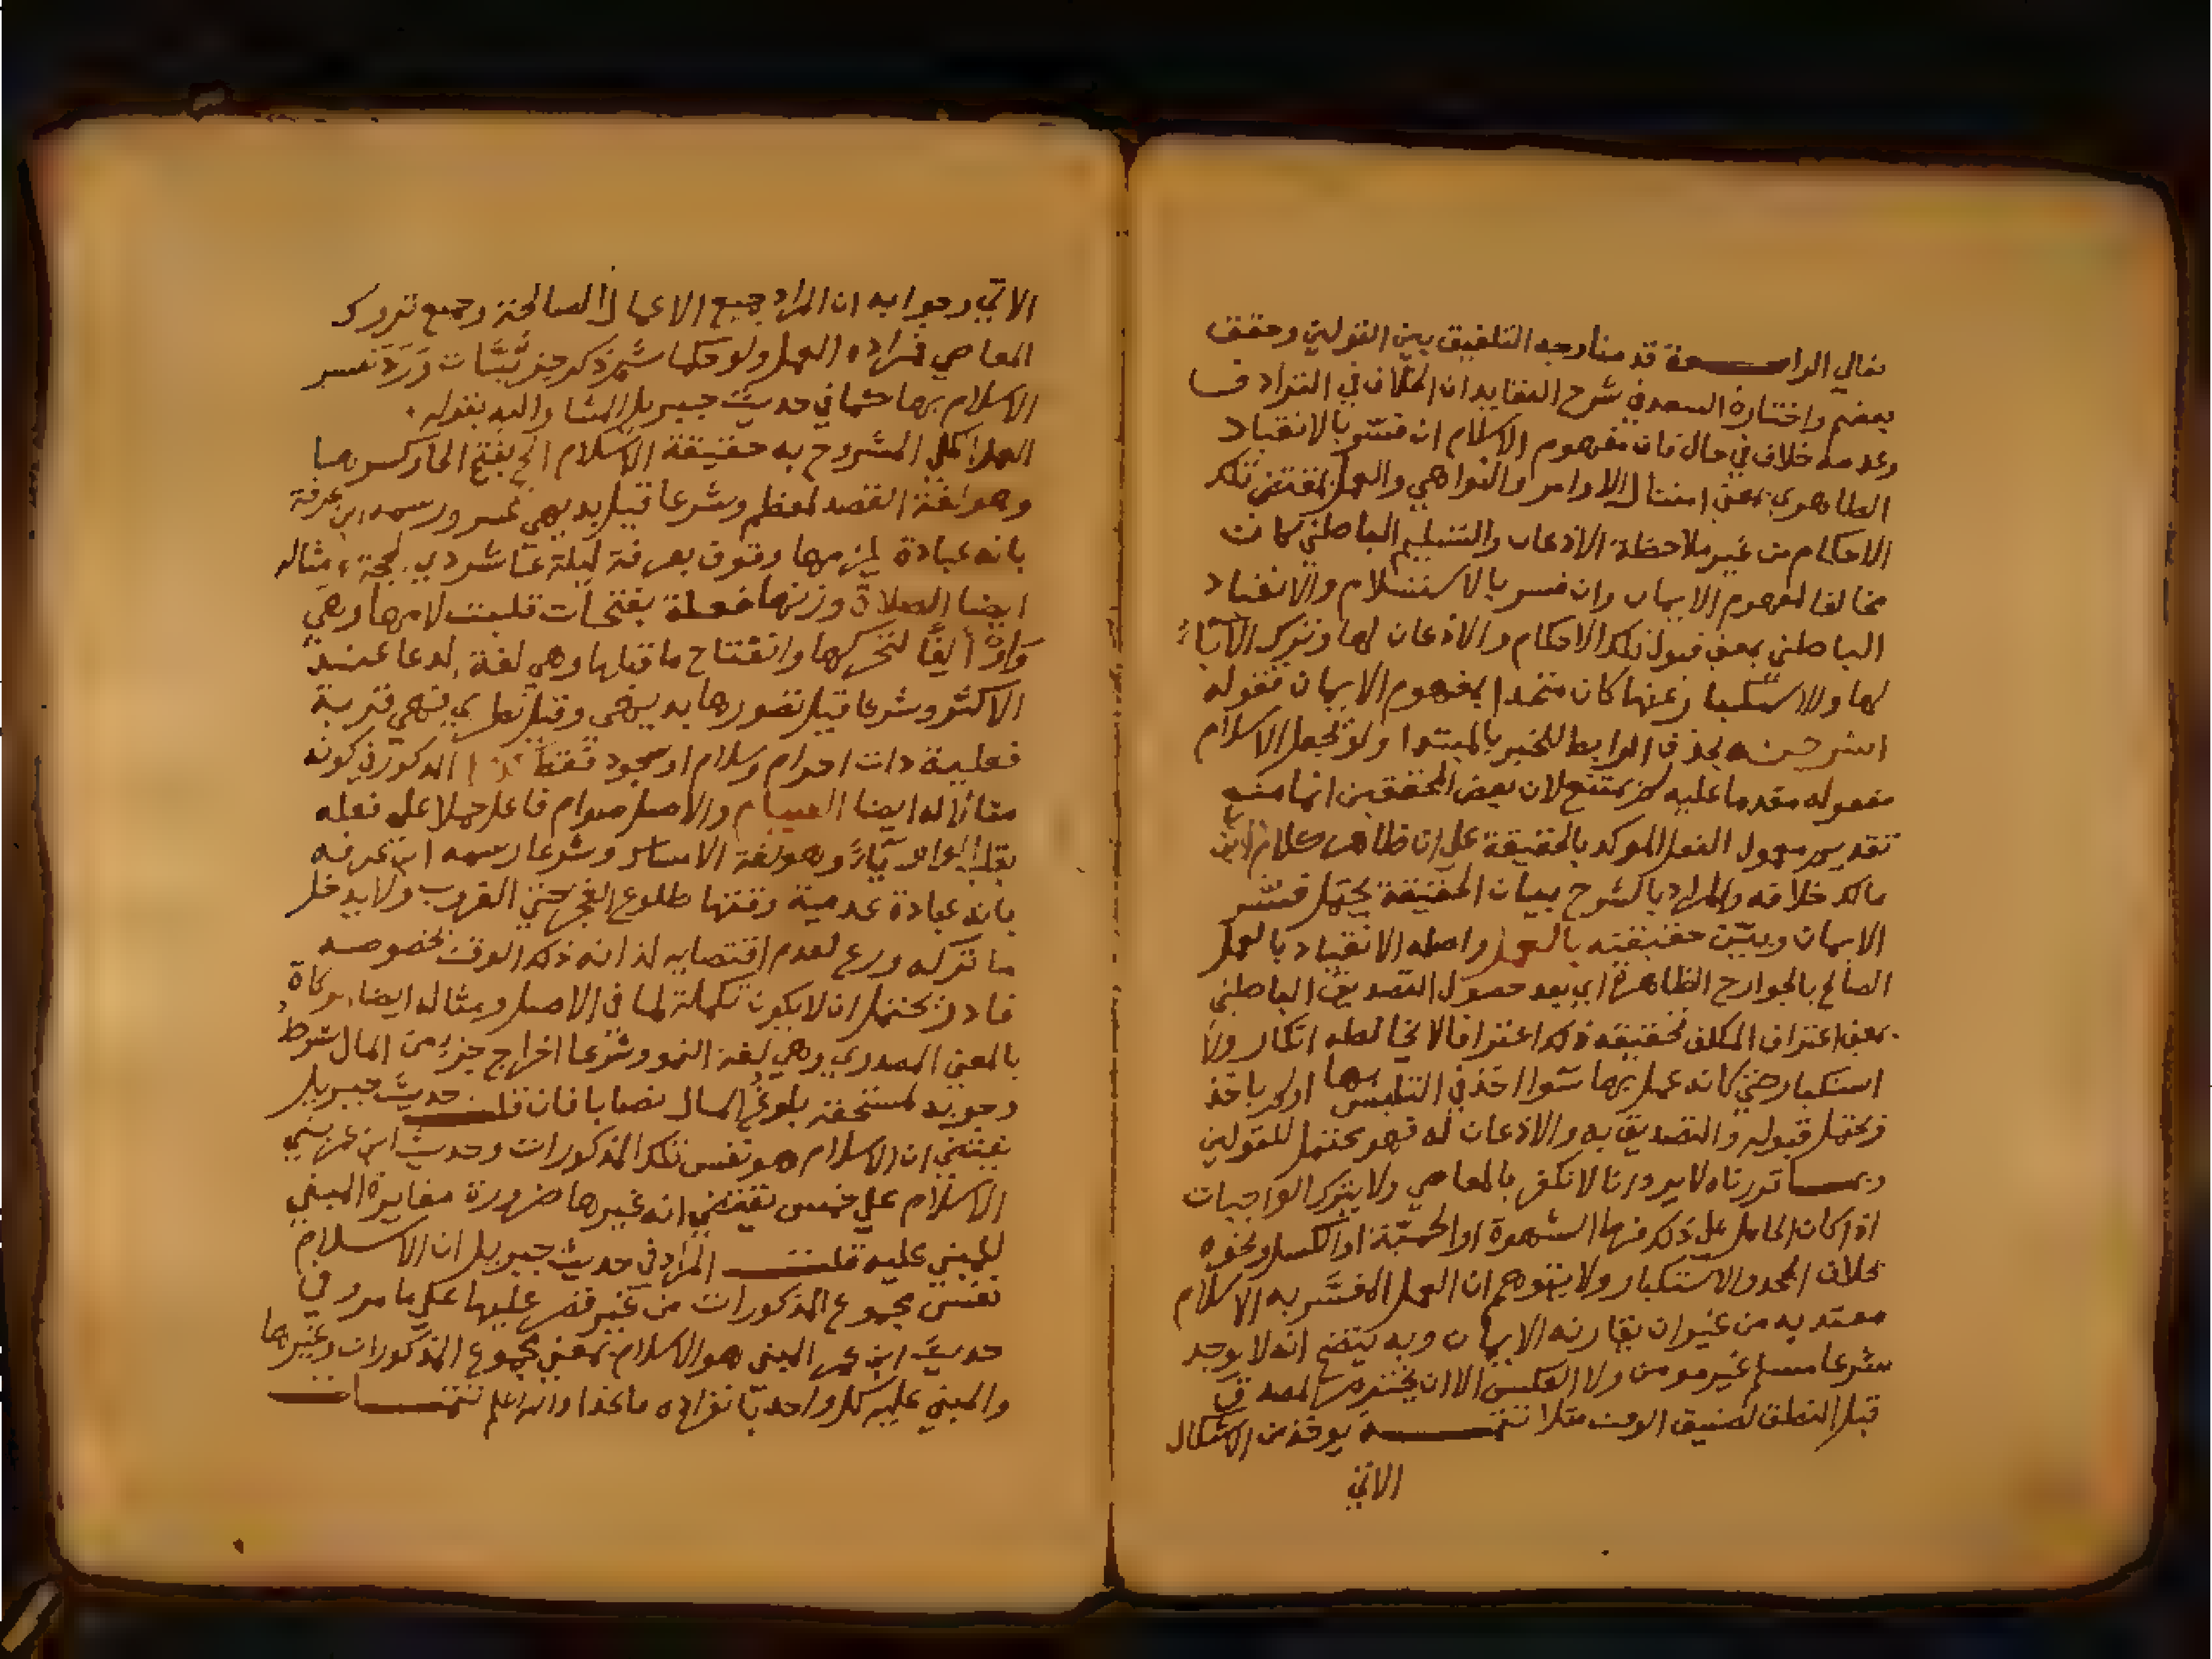 تعالي الرابعة قدمنا وجه التلفيق بين القولين وحقق
بعضهم واختاره السعد في شرح العقايد ان الخلاف في الترادف
وعدمه خلاف في حال فان مفهوم الاسلام ان فسر بالانقياد
الظاهري بمعني امتثال الاوامر والنواهي والعمل بمقتضي تلك
الاحكام من غير ملاحظة الاذعان والتسليم الباطني كان
مخالفا لمفهوم الايمان وان فسر بالاستسلام والانقياد
الباطني بمعني قبول تلك الاحكام والاذعان لها وترك الاباء
لها والاستكبار عنها كان متحدا بمفهوم الايمان فقوله
اشرحنه بحذف الرابط للخبر بالمبتدا ولو تجعل الاسلام
مفعوله مقدما عليه لم يمتنع لان بعض المحققين انما منع
تقديم معمول الفعل الموكد بالخفيفة علي ان ظاهر كلام ابن
مالك خلافه والمراد بالشرح بيان الحقيقة يحتمل فسر
الايمان وبين حقيقته بالعمل واصله الانقياد بالعمل
الصالح بالجوارح الظاهرة اي بعد حصول التصديق الباطني
بمعني اعتراف المكلف بحقيقة ذلك اعترافا لا يخالطه انكار ولا
استكبار حتي كانه عمل بها سوا اخذ في التلبس بها او لم ياخذ
ويحتمل قبوله والتصديق به والاذعان له فهو محتمل للقولين
وبما قررناه لا يرد انا لا نكفر بالمعاصي ولا بترك الواجبات
اذا كان الحامل علي ذلك فيها الشهوة او الحمية او الكسل ونحوه
بخلاف الجحد والاستكبار ولا يتوهم ان العمل المفسر به الاسلام
معتد به من غير ان يقارنه الايمان وبه يتضح انه لا يوجد
شرعا مسلم غير مومن ولا العكس الا ان يخترم المصدق
قبل النطق لضيق الوقت مثلا تنبيه يوخذ من الاشكال
الاتي
الاتي وجوابه ان المراد جميع الاعمال الصالحة وجميع تروك
المعاصي فمراده العمل ولو حكما شم ذكر جزئيات ورد تفسير
الاسلام بها كما في حديث جبريل المشار اليه بقوله
العمل اي المشروح به حقيقة الاسلام الحج بفتح الحا وكسرها
وهو لغة القصد لمعظم وشرعا قيل بديهي عسر ورسمه ابن عرفة
بانه عبادة يلزمها وقوف بعرفة ليلة عاشر ذي الحجة ومثاله
ايضا الصلاة وزنها فعلة بفتحات قلبت لامها وهي
واو الفا لتحركها وانفتاح ما قبلها وهي لغة الدعا عند
الاكثر وشرعا قيل تصورها بديهي وقيل نظري فهي قربة
فعلية ذات احرام وسلام او سجود فقط كذا المذكور في كونه
مثالا له ايضا الصيام والاصل صوام فاعل حملا علي فعله
بقلب الواو ياء وهو لغة الامساك وشرعا رسمه ابن عرفه
بانه عبادة عدمية وقتها طلوع الفجر حتي الغروب ولا يدخل
ما تركه ورع لعدم اقتضايه لذاته ذلك الوقت بخصوصه
فادر يحتمل ان لا يكون تكملة لما في الاصل ومثاله ايضا زكاة
بالمعني المصدري وهي لغة النمو وشرعا اخراج جزء من المال شرط
وجوبه لمستحقه بلوغ المال نصابا فان قلت حديث جبريل
يقتضي ان الاسلام هو نفس تلك المذكورات وحديث ابن عمر بني
الاسلام علي خمس يقتضي انه غيرها ضرورة مغايرة المبني
للمبني عليه قلت المراد في حديث جبريل ان الاسلام
نفس مجموع المذكورات من غير قصر عليها علي ما مر وفي
حديث ابن عمر المبني هو الاسلام بمعني مجموع المذكورات وغيرها
والمبني عليه كل واحد بانفراده ماعدا والله اعلم تتمات